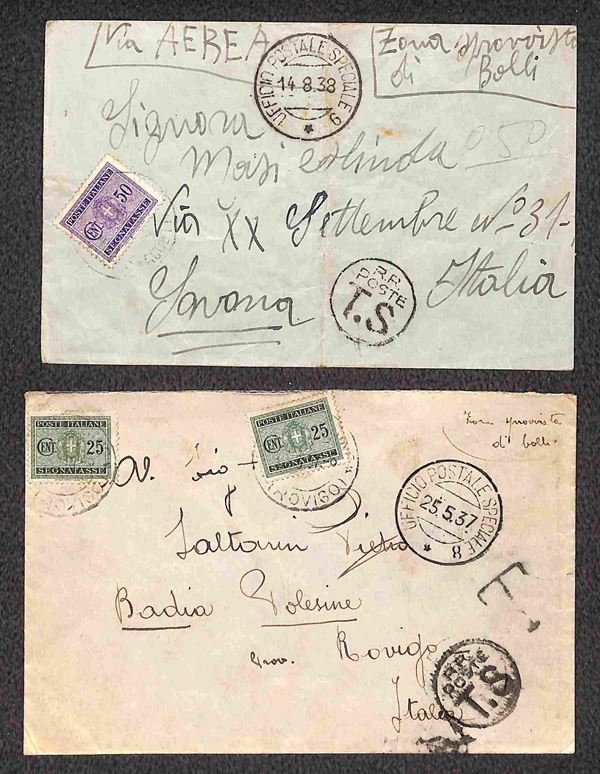 Via AEREA
Zona sprovvista
di Bolli
UFFICIO POSTALE SPECIALE 9
14.8.38
Signora
Masi
Via XX Settembre N° 31-
Savona
Italia
POSTE ITALIANE
CENT 50
SEGNATASSE
R.R.
POSTE
T.S
POSTE ITALIANE
CENT 25
SEGNATASSE
POSTE ITALIANE
CENT 25
SEGNATASSE
Zona sprovvista
di bolli
UFFICIO POSTALE SPECIALE 8
25.5.37
Pietro
Badia Polesine
Prov. Rovigo
Italia
R.R.
POSTE
T.S